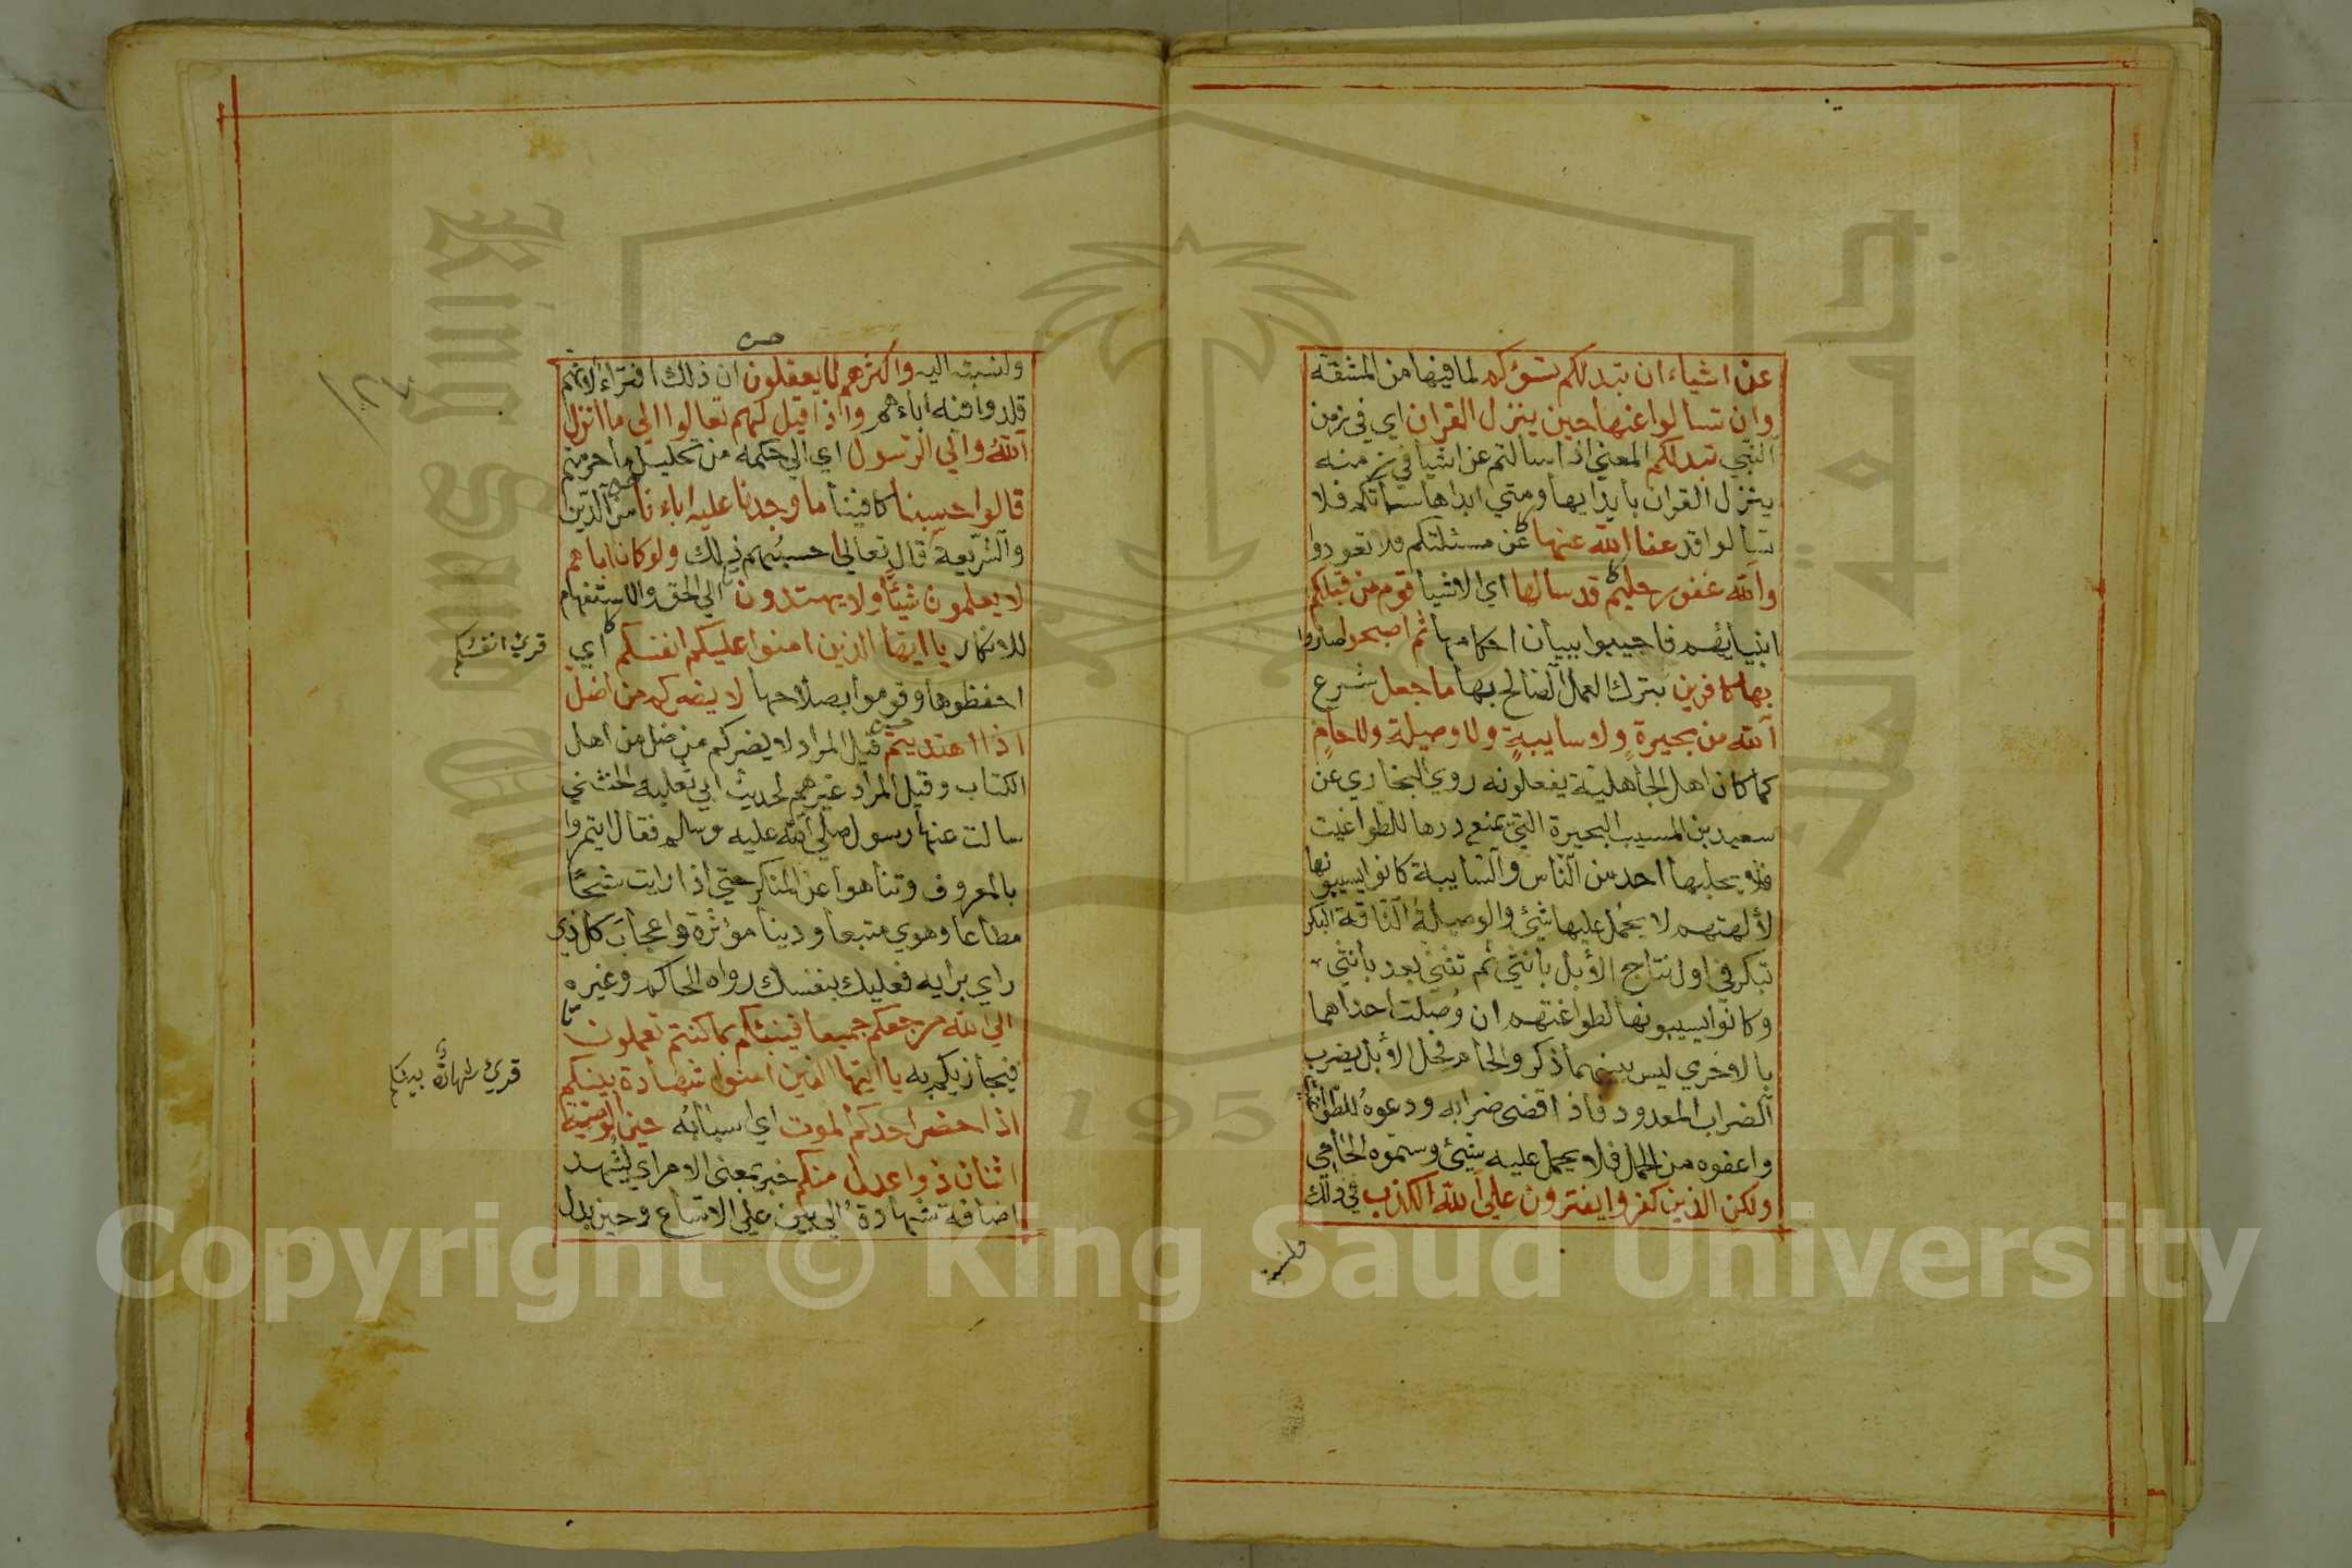 عن اشياء ان تبد لكم تسؤكم لما فيها من المشقة
وان تسالوا عنها حين ينزل القران اي في زمن
النبي تبد لكم المعنى اذا سالتم عن اشيا في زمنه
ينزل القران بابدايها ومتي ابداها ساتكم فلا
تسالوا قد عفا الله عنها عن مسئلتكم فلا تعودوا
والله غفور حليم قد سالها اي الاشيا قوم من قبلكم
انبيايهم فاجيبوا ببيان احكامها ثم اصبحوا صاروا
بها كافرين بتركك العمل الصالح بها ما جعل شرع
الله من بحيرة ولا سايبة ولا وصيلة ولا حام
كما كان اهل الجاهلية يفعلونه روي البخاري عن
سعيد بن المسيب البحيرة التي يمنع درها للطواغيت
فلا يحلبها احد من الناس والسايبة كانوا يسيبونها
لألهتهم لا يحمل عليها شيئ والوصيلة الناقة البكر
تبكر في اول نتاج الأبل بانثي ثم تثني بعد بانثي
وكانوا يسيبونها لطواغيتهم ان وصلت احداهما
بالاخري ليس بينهما ذكر والحام فحل الأبل يضرب
الضراب المعدود فاذا قضى ضرابه ودعوه للطواغيت
واعفوه من الحمل فلا يحمل عليه شيئ وسموه الحامي
ولكن الذين كفروا يفترون علي الله الكذب في ذلك
ونسبته
ونسبته اليه واكثرهم لا يعقلون ان ذلك افتراء لانهم
قلدوا فيه اباءهم واذا قيل لهم تعالوا الي ما انزل
الله والي الرسول اي الي حكمه من تحليل ما حرمتم
قالوا حسبنا كافينا ما وجدنا عليه اباءنا من الدين
والشريعة قال تعالي احسبهم ذلك ولو كان اباءهم
لا يعلمون شيئا ولا يهتدون الي الحق والاستفهام
للانكار يا ايها الذين امنوا عليكم انفسكم اي
احفظوها وقوموا بصلاحها لا يضركم من ضل
اذا اهتديتم قيل المراد لا يضركم من ضل من اهل
الكتاب وقيل المراد غيرهم لحديث ابي ثعلبه الخشني
سالت عنها رسول صلي الله عليه وسلم فقال ايتمروا
بالمعروف وتناهوا عن المنكر حتي اذا رايت شحا
مطاعا وهوي متبعا ودينا مؤثرة واعجاب كل ذي
راي برايه فعليك بنفسك رواه الحاكم وغيره
الي الله مرجعكم جميعا فينبئكم بما كنتم تعملون
فيجازيكم به يا ايها الذين امنوا شهادة بينكم
اذا حضر احدكم الموت اي اسبابه حين الوصية
اثنان ذوا عدل منكم خبر بمعنى الامر اي ليشهد
اضافة شهادة الي بين علي الاتساع وحين بدل
قري انفسكم
قري شهادة بينكم